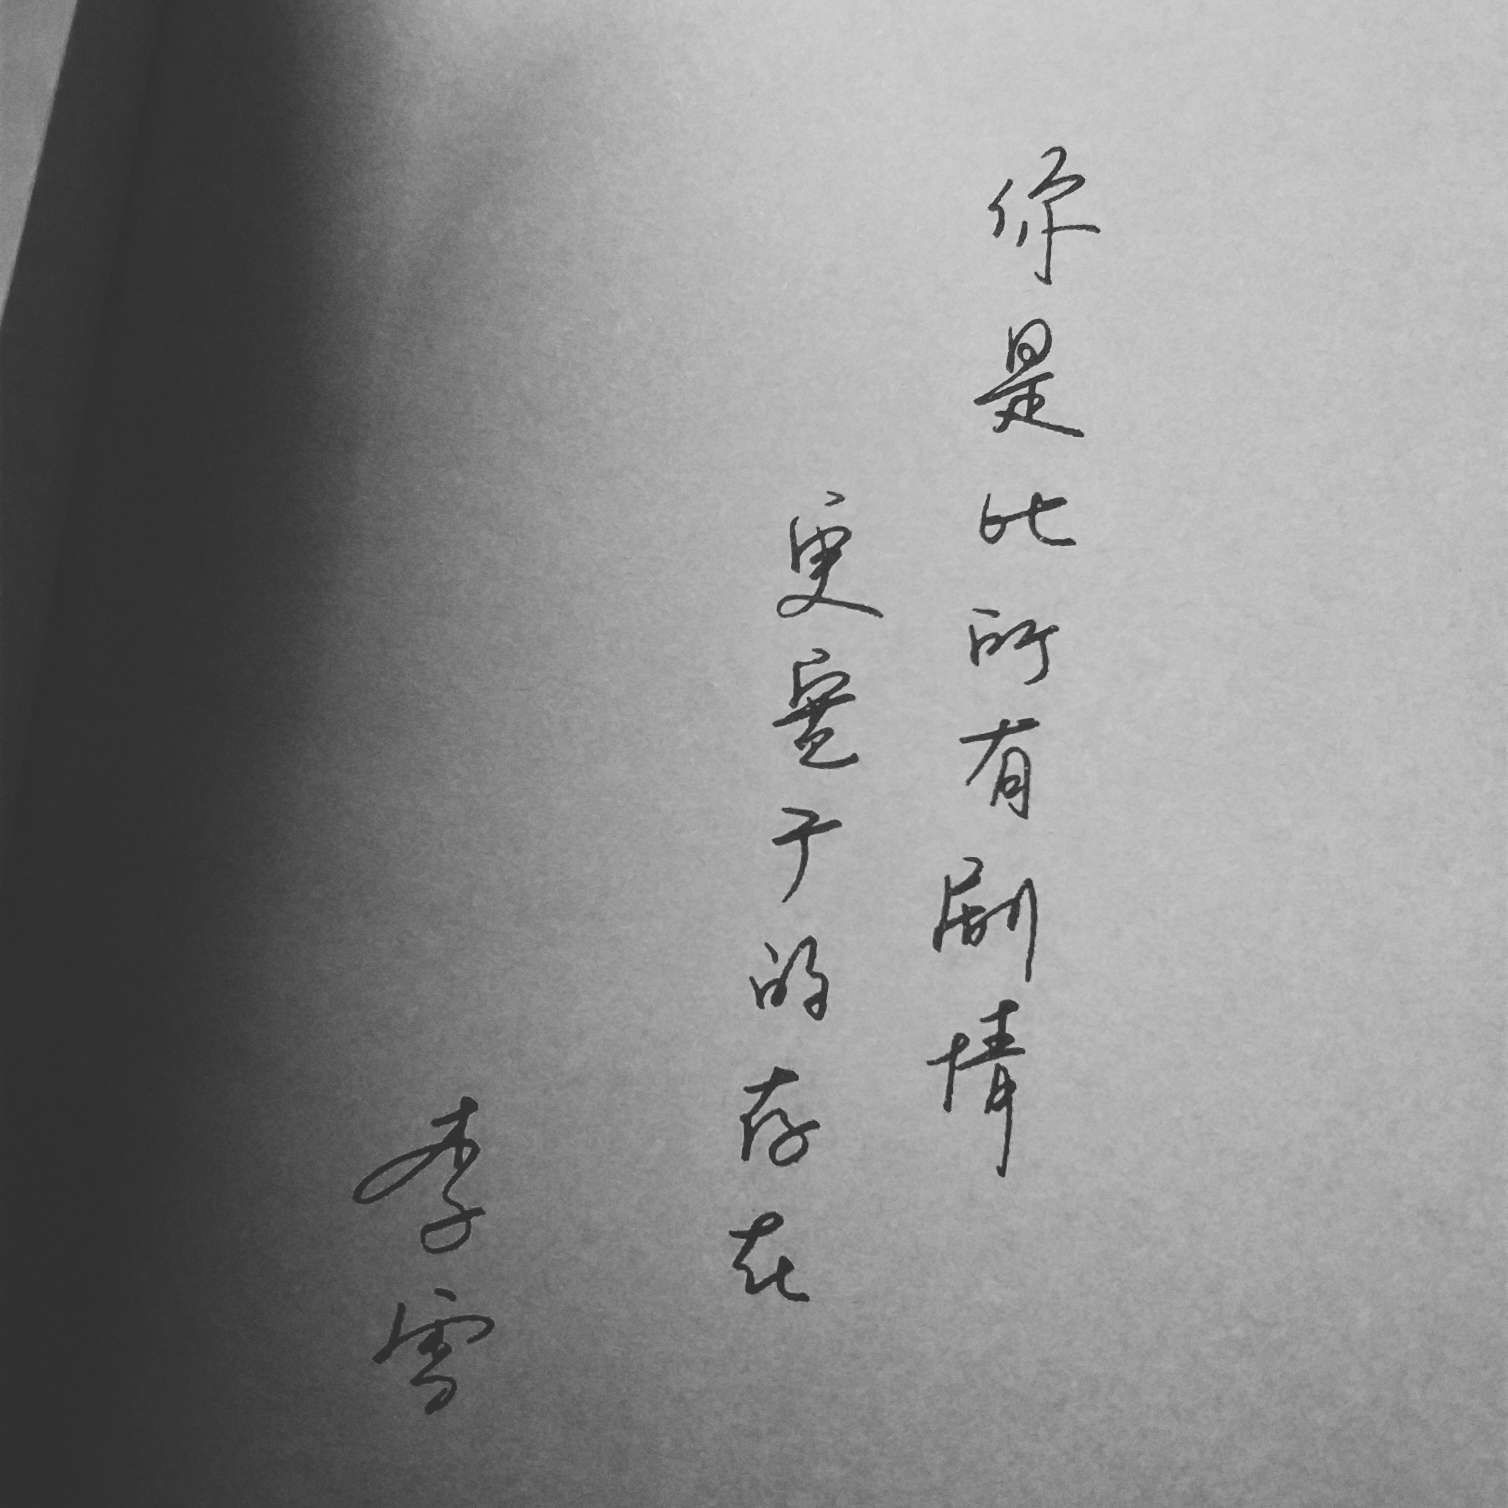 你是比所有剧情
更宽广的存在
李雪